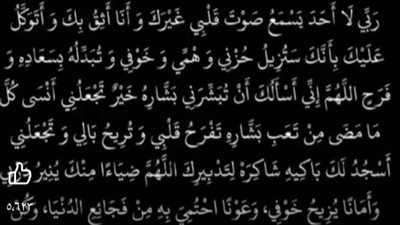 رَبِّي لَا أَحَدَ يَسْمَعُ صَوْتَ قَلْبِي غَيْرَكَ وَ أَنَا أَثِقُ بِكَ وَ أَتَوَكَّلُ
عَلَيْكَ بِأَنَّكَ سَتُزِيلُ حُزْنِي وَ هَمِّي وَ خَوْفِي وَ تُبَدِّلُهُ بِسَعَادِهِ وَ
فَرَحِ اللَّهُمَّ إِنِّي أَسْأَلُكَ أَنْ تُبَشِّرَنِي بَشَارِهُ خَيْرٌ تَجْعَلُنِي أَنْسَى كُلَّ
مَا مَضَى مِنْ تَعَبِ بَشَارِهِ تَفْرَحُ قَلْبِي وَ تُرِيحُ بَالِي وَ تَجْعَلُنِي
أَسْجُدُ لَكَ بَاكِيهِ شَاكِرَهْ لِتَدْبِيرِكَ اللَّهُمَّ ضِيَاءًا مِنْكَ يُنِيرُ
وَأَمَانًا يُزِيحُ خَوْفِي، وَعَوْنًا احْتُمِيَ بِهِ مِنْ فَجَائِعِ الدُّنْيَا، وَكُنْ
٥٬٦٢٣